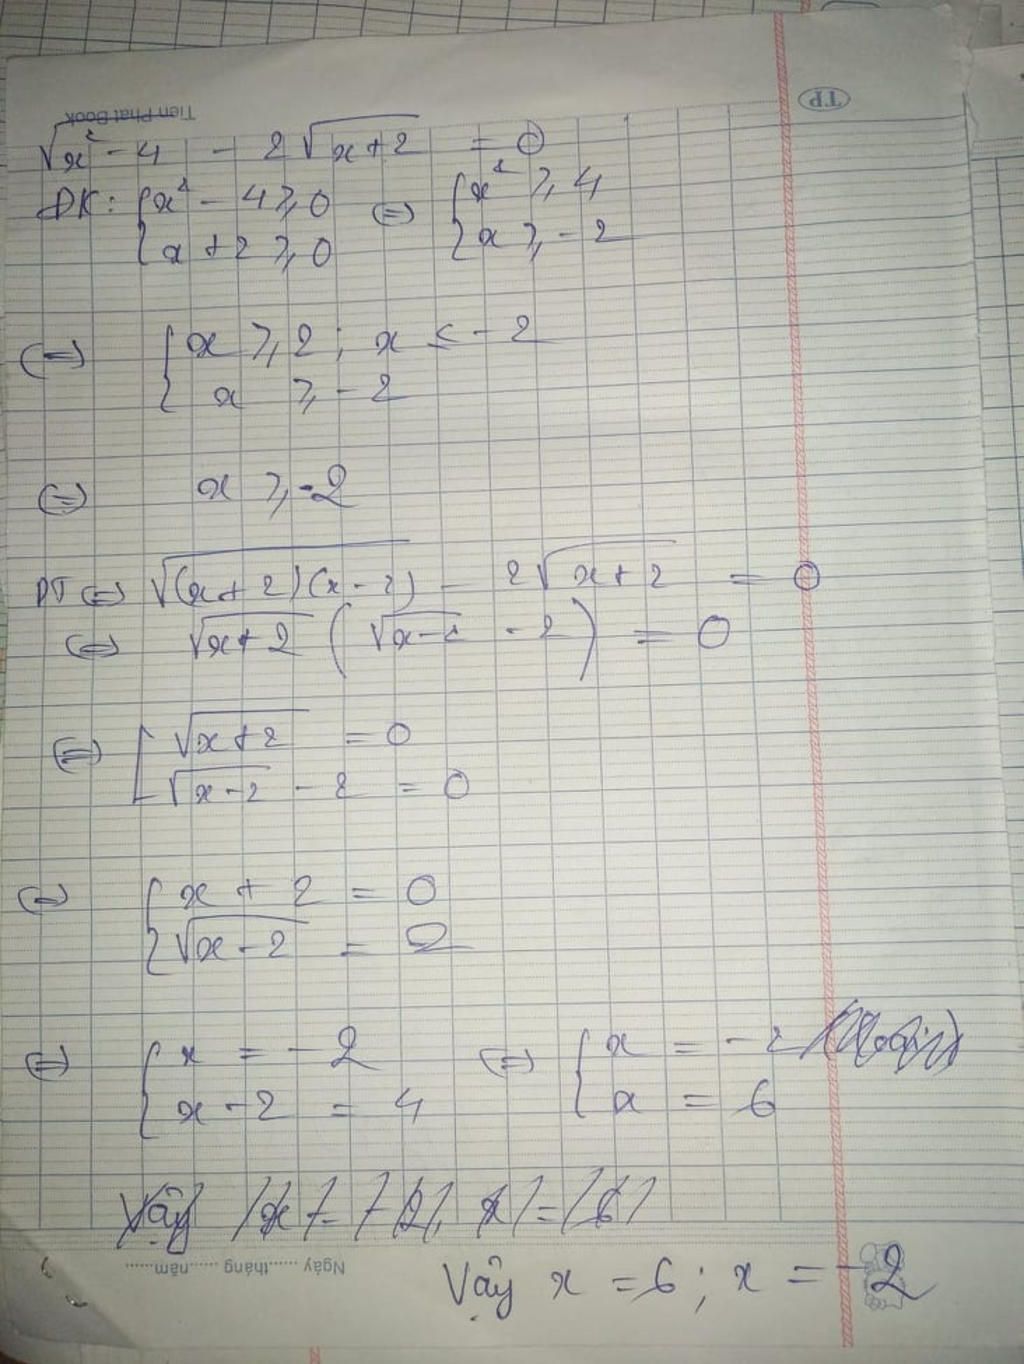 TP
Tien Phat Book
√x² - 4 - 2√x+2 = 0
ĐK: { x² - 4 ≥ 0 (=) { x² ≥ 4
{ x + 2 ≥ 0 { x ≥ -2
(=) { x ≥ 2 ; x ≤ -2
{ x ≥ -2
(=) x ≥ -2
PT (=) √(x+2)(x-2) - 2√x+2 = 0
(=) √x+2 ( √x-2 - 2 ) = 0
(=) [ √x+2 = 0
[ √x-2 - 2 = 0
(=) { x + 2 = 0
{ √x-2 = 2
(=) { x = -2 (=) { x = -2
{ x - 2 = 4 { x = 6
Vậy
Ngày ......tháng ......năm......
Vậy x = 6 ; x = -2